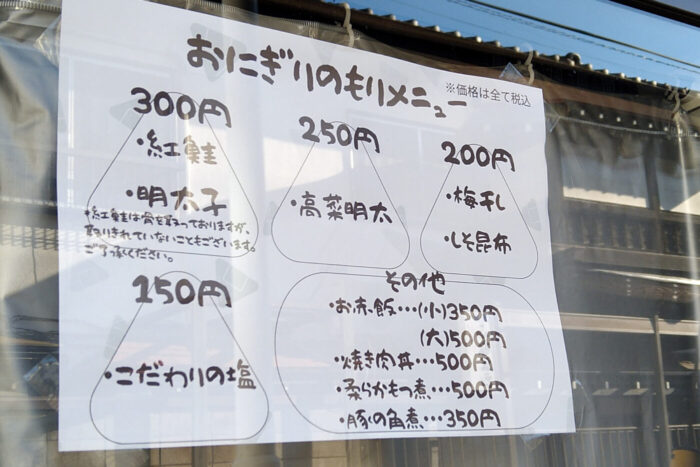 おにぎりのもりメニュー
※価格は全て税込
300円
・紅鮭
・明太子
*紅鮭は骨を取っておりますが、
取りきれていないこともございます。
ご了承ください。
250円
・高菜明太
200円
・梅干し
・しそ昆布
150円
・こだわりの塩
その他
・お赤飯…(小)350円
(大)500円
・焼き肉丼…500円
・柔らかもつ煮…500円
・豚の角煮…350円